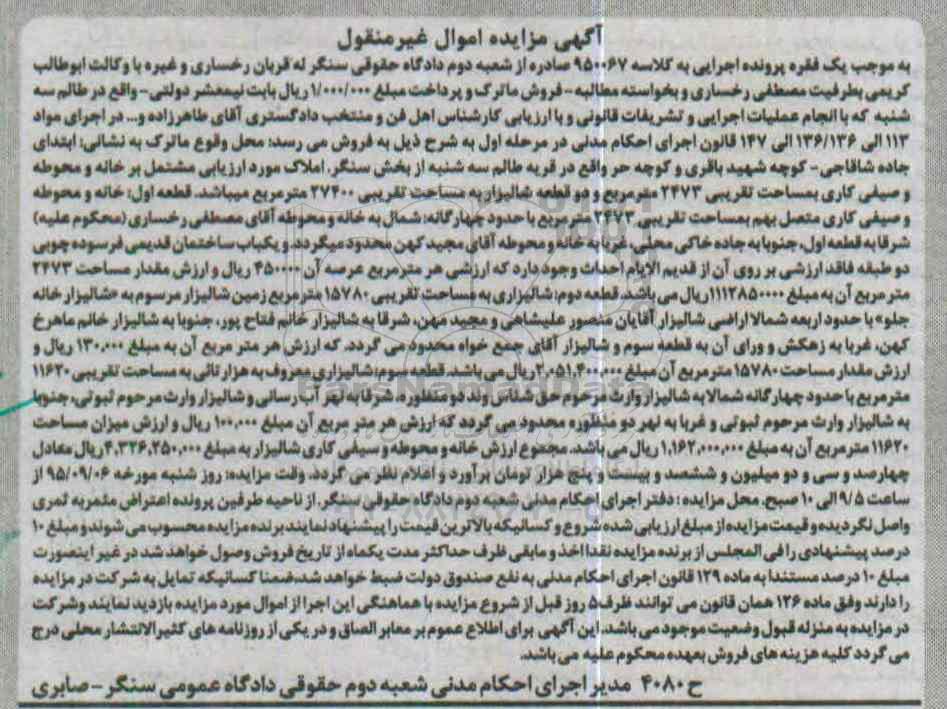 آگهی مزایده اموال غیرمنقول
به موجب یک فقره پرونده اجرایی به کلاسه ۹۵۰۰۶۷ صادره از شعبه دوم دادگاه حقوقی سنگر له قربان رخساری و غیره با وکالت ابوطالب
کریمی بطرفیت مصطفی رخساری و بخواسته مطالبه - فروش ماترک و پرداخت مبلغ ۱/۰۰۰/۰۰۰ ریال بابت نیمعشر دولتی - واقع در طالم سه
شنبه که با انجام عملیات اجرایی و تشریفات قانونی و با ارزیابی کارشناس اهل فن و منتخب دادگستری آقای طاهرزاده و... در اجرای مواد
۱۱۳ الی ۱۳۶/۱۳۶ الی ۱۴۷ قانون اجرای احکام مدنی در مرحله اول به شرح ذیل به فروش می رسد: محل وقوع ماترک به نشانی: ابتدای
جاده شاقاجی - کوچه شهید باقری و کوچه حر واقع در قریه طالم سه شنبه از بخش سنگر. املاک مورد ارزیابی مشتمل بر خانه و محوطه
و صیفی کاری بمساحت تقریبی ۲۴۷۳ مترمربع و دو قطعه شالیزار به مساحت تقریبی ۲۷۴۰۰ مترمربع میباشد. قطعه اول: خانه و محوطه
و صیفی کاری متصل بهم بمساحت تقریبی ۲۴۷۳ مترمربع با حدود چهارگانه: شمال به خانه و محوطه آقای مصطفی رخساری (محکوم علیه)
شرقا به قطعه اول، جنوبا به جاده خاکی محلی، غربا به خانه و محوطه آقای مجید کهن محدود میگردد. و یکباب ساختمان قدیمی فرسوده چوبی
دو طبقه فاقد ارزشی بر روی آن از قدیم الایام احداث وجود دارد که ارزشی هر مترمربع عرصه آن ۴۵۰۰۰۰ ریال و ارزش مقدار مساحت ۲۴۷۳
متر مربع آن به مبلغ ۱۱۱۲۸۵۰۰۰۰ ریال می باشد. قطعه دوم: شالیزاری به مساحت تقریبی ۱۵۷۸۰ مترمربع زمین شالیزار مرسوم به «شالیزار خانه
جلو» با حدود اربعه شمالا اراضی شالیزار آقایان منصور علیشاهی و مجید مهن، شرقا به شالیزار خانم فتاح پور، جنوبا به شالیزار خانم ماهرخ
کهن، غربا به زهکش و ورای آن به قطعه سوم و شالیزار آقای جمع خواه محدود می گردد. که ارزش هر متر مربع آن به مبلغ ۱۳۰,۰۰۰ ریال و
ارزش مقدار مساحت ۱۵۷۸۰ مترمربع آن مبلغ ۲,۰۵۱,۴۰۰,۰۰۰ ریال می باشد. قطعه سوم: شالیزاری معروف به هزارتائی به مساحت تقریبی ۱۱۶۲۰
مترمربع با حدود چهارگانه شمالا به شالیزار وارث مرحوم حق شناس وند دو منظوره، شرقا به نهر آب رسانی و شالیزار وارث مرحوم ثبوتی، جنوبا
به شالیزار وارث مرحوم ثبوتی و غربا به نهر دو منظوره محدود می گردد که ارزش هر متر مربع آن مبلغ ۱۰۰,۰۰۰ ریال و ارزش میزان مساحت
۱۱۶۲۰ مترمربع آن به مبلغ ۱,۱۶۲,۰۰۰,۰۰۰ ریال می باشد. مجموع ارزش خانه و محوطه و سیفی کاری شالیزار به مبلغ ۴,۳۲۶,۲۵۰,۰۰۰ ریال معادل
چهارصد و سی و دو میلیون و ششصد و بیست و پنج هزار تومان برآورد و اعلام نظر می گردد. وقت مزایده: روز شنبه مورخه ۹۵/۰۹/۰۶ از
ساعت ۹/۵ الی ۱۰ صبح. محل مزایده: دفتر اجرای احکام مدنی شعبه دوم دادگاه حقوقی سنگر. از ناحیه طرفین پرونده اعتراض مثمربه ثمری
واصل نگردیده و قیمت مزایده از مبلغ ارزیابی شده شروع و کسانیکه بالاترین قیمت را پیشنهاد نمایند برنده مزایده محسوب می شوند و مبلغ ۱۰
درصد پیشنهادی را فی المجلس از برنده مزایده نقدا اخذ و مابقی ظرف حداکثر مدت یکماه از تاریخ فروش وصول خواهد شد در غیر اینصورت
مبلغ ۱۰ درصد مستندا به ماده ۱۲۹ قانون اجرای احکام مدنی به نفع صندوق دولت ضبط خواهد شد. ضمنا کسانیکه تمایل به شرکت در مزایده
را دارند وفق ماده ۱۲۶ همان قانون می توانند ظرف ۵ روز قبل از شروع مزایده با هماهنگی این اجرا از اموال مورد مزایده بازدید نمایند و شرکت
در مزایده به منزله قبول وضعیت موجود می باشد. این آگهی برای اطلاع عموم بر معابر الصاق و در یکی از روزنامه های کثیرالانتشار محلی درج
می گردد کلیه هزینه های فروش بعهده محکوم علیه می باشد.
ح ۴۰۸۰ مدیر اجرای احکام مدنی شعبه دوم حقوقی دادگاه عمومی سنگر - صابری
ParsNamadData